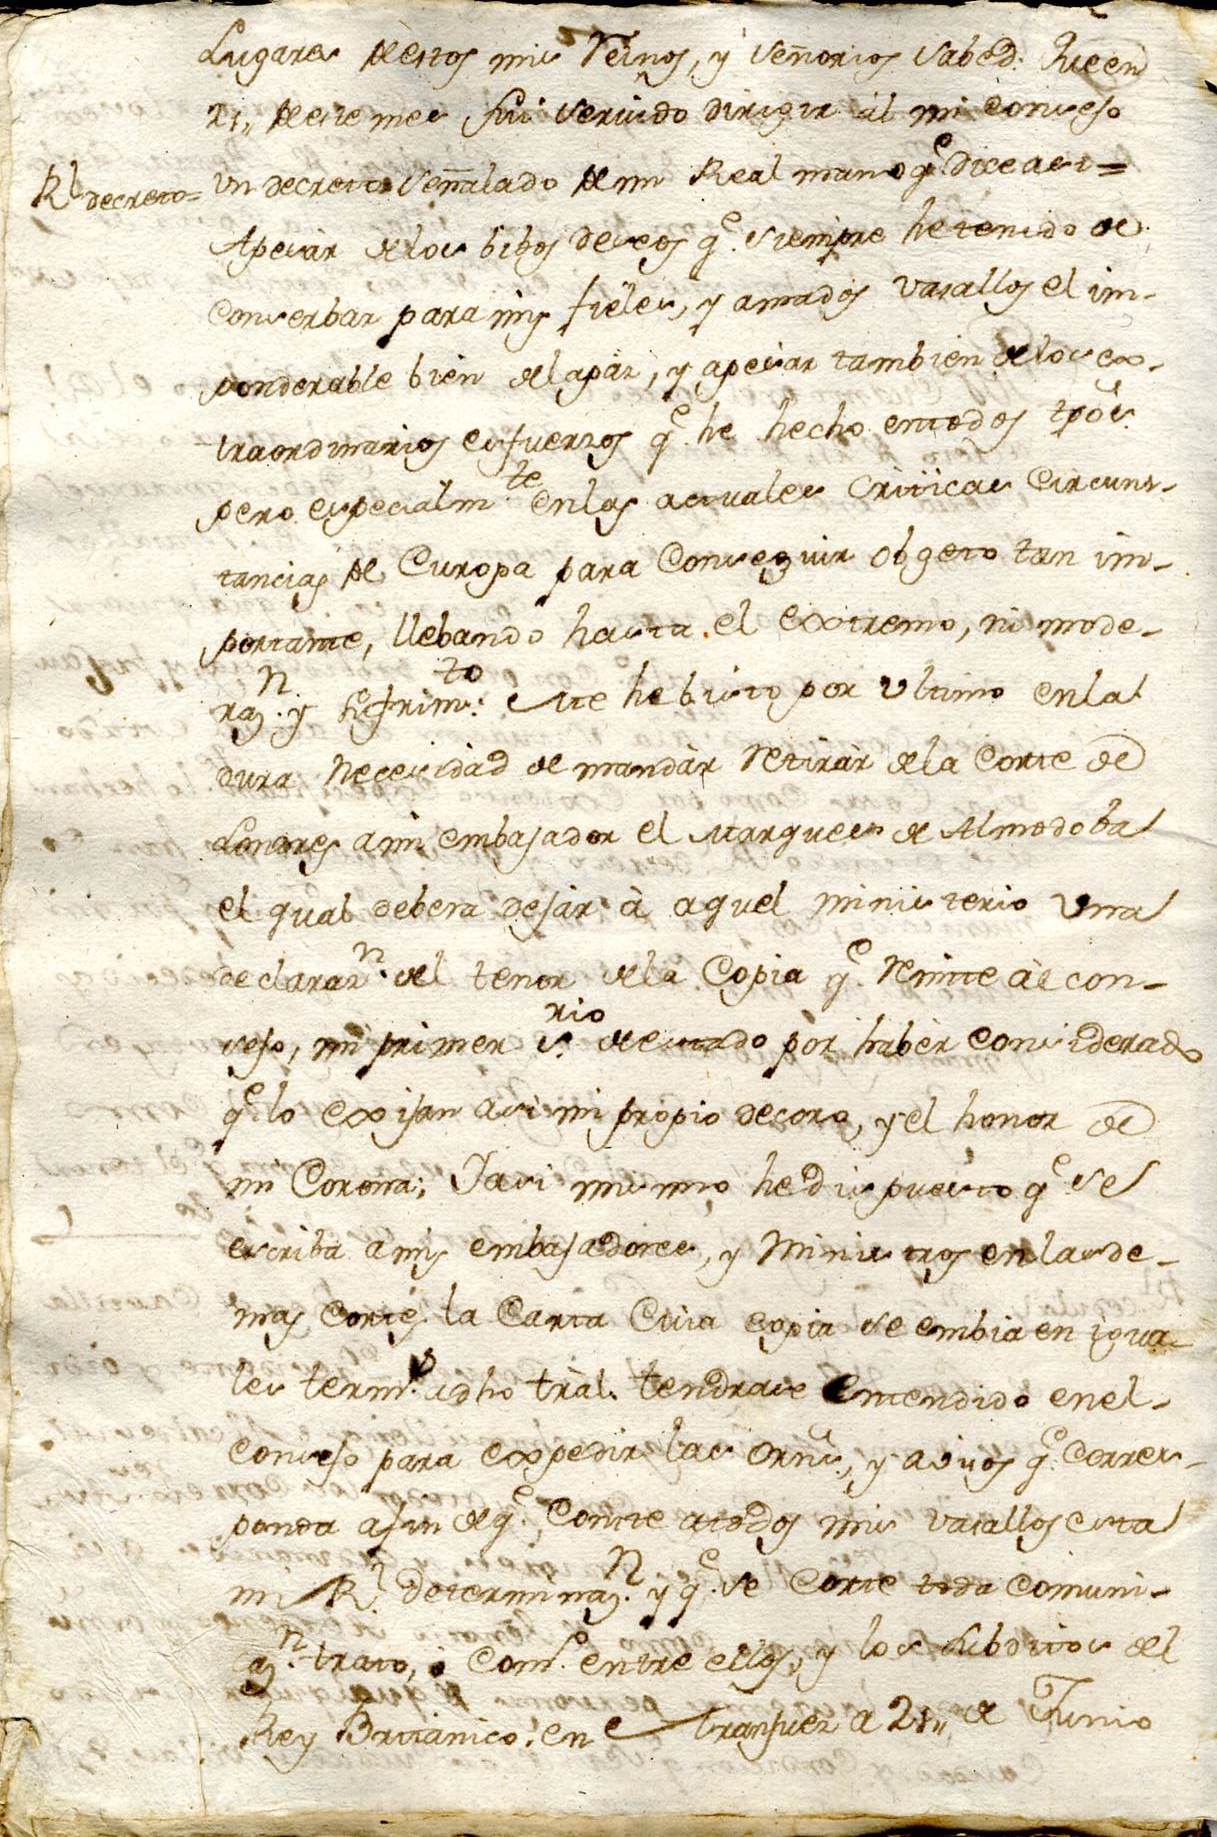 Lugares de estos mis Reinos, y señorios sabed. Que en
21,, de este mes fui servido dirigir al mi consejo
Rl decreto= un decreto señalado de mi Real mano q.e Dice asi=
Apesar de los bibos deseos q.e siempre he tenido de
conserbar para mis fieles, y amados vasallos el im-
ponderable bien de la paz, y apesar tambien de los ex-
traordinarios esfuerzos q.e he hecho en todos tpos.
pero especialm.te en las actuales Criticas Circuns-
tancias de Europa para Conseguir obgeto tan im-
portante, llebando hasta el extremo, mi mode-
raz.n y sufrim.to me he bisto por ultimo en la
dura Necesidad de mandàr Retiràr de la Corte de
Londres a mi embajador el Marques de Almodobal
el qual debera dejàr à aquel ministerio una
declaraz.n del tenor de la Copia q.e Remite àl con-
sejo, mi primer s.rio de estado por habèr considerado
q.e lo exijan asi mi propio decoro, y el honor de
mi Corona; Y asi mismo he dispuesto q.e se
escriba a mis embajadores, y Ministros en las de-
mas Cortes la Carta Cuia copia se embia en igua
les term.s a dho tràl. tendrase entendido en el-
Consejo para expedir las orns, y avisos q.e corres-
ponda a fin de q.e Conste a todos mis vasallos esta
mi Rl Determinaz.n y q.e se Corte toda comuni-
caz.n trato, o Com.o entre ellos, y los subditos del
Rey Brittanico. en Aranjuez a 21,, de Junio